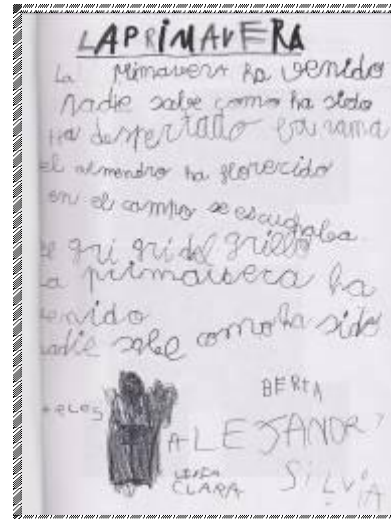 LA PRIMAVERA
La Primavera ha venido
Nadie sabe como ha sido
Ha despertado la rama
el almendro ha florecido
en el campo se escuchaba
el gri gri del grillo
La primavera ha
venido
nadie sabe como ha sido
BERTA
ALEJANDR
CLARA
SILVIA